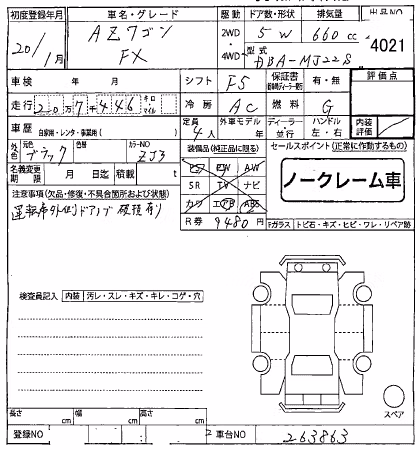 初度登録年月 車名・グレード 駆動 ドア数・形状 排気量 出品NO
20/1月 AZワゴン FX 2WD 4WD 5W 660cc 4021
型式 DBA-MJ22S
車検 年 月 シフト F5 保証書 有・無 評価点
走行 20万7千446 キロ マイル 冷房 AC 燃料 G
車歴 自家用・レンタ・事業用( ) 定員 4人 外車モデル 年 ディーラー 並行 ハンドル 左・右 内装評価
外色 元色 ブラック 色替 カラーNO ZJ3 装備品(純正品に限る) セールスポイント(正常に作動するもの)
名義変更期限 月 日迄 積載 t PS PW AW
注意事項(欠品・修復・不具合箇所および状態) SR TV ナビ ノークレーム車
運転席外側ドアノブ破損有り カワ エアB ABS
R券 9480円 Fガラス トビ石・キズ・ヒビ・ワレ・リペア跡
検査員記入 内装 汚レ・スレ・キズ・キレ・コゲ・穴
スペア
長さ cm 幅 cm 高さ cm
登録NO 車台NO 263863